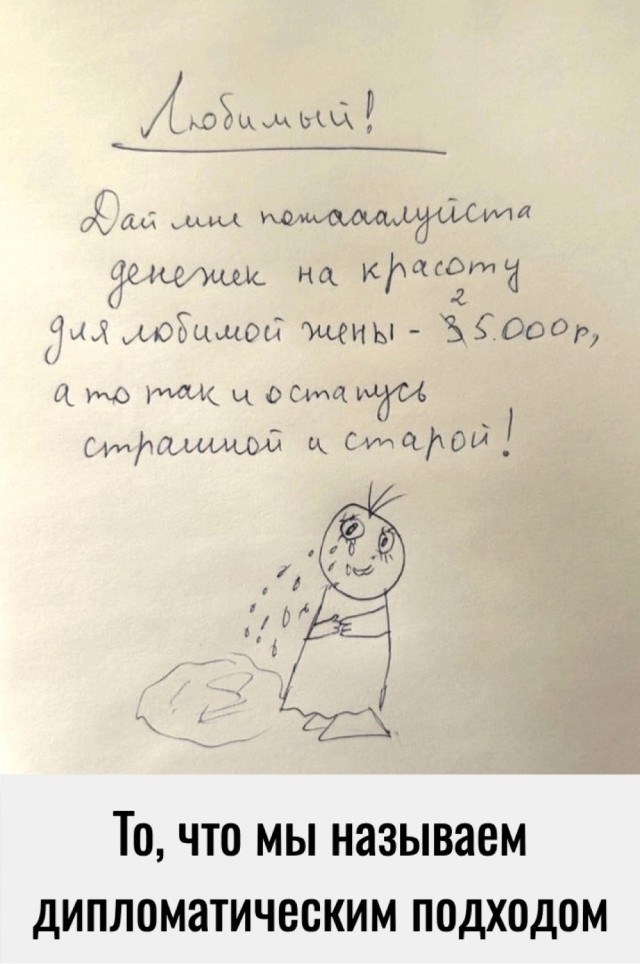 Любимый!
Дай мне пожааалуйста
денежек на красоту
2
для любимой жены - 35.000р,
а то так и останусь
страшной и старой!
То, что мы называем
дипломатическим подходом